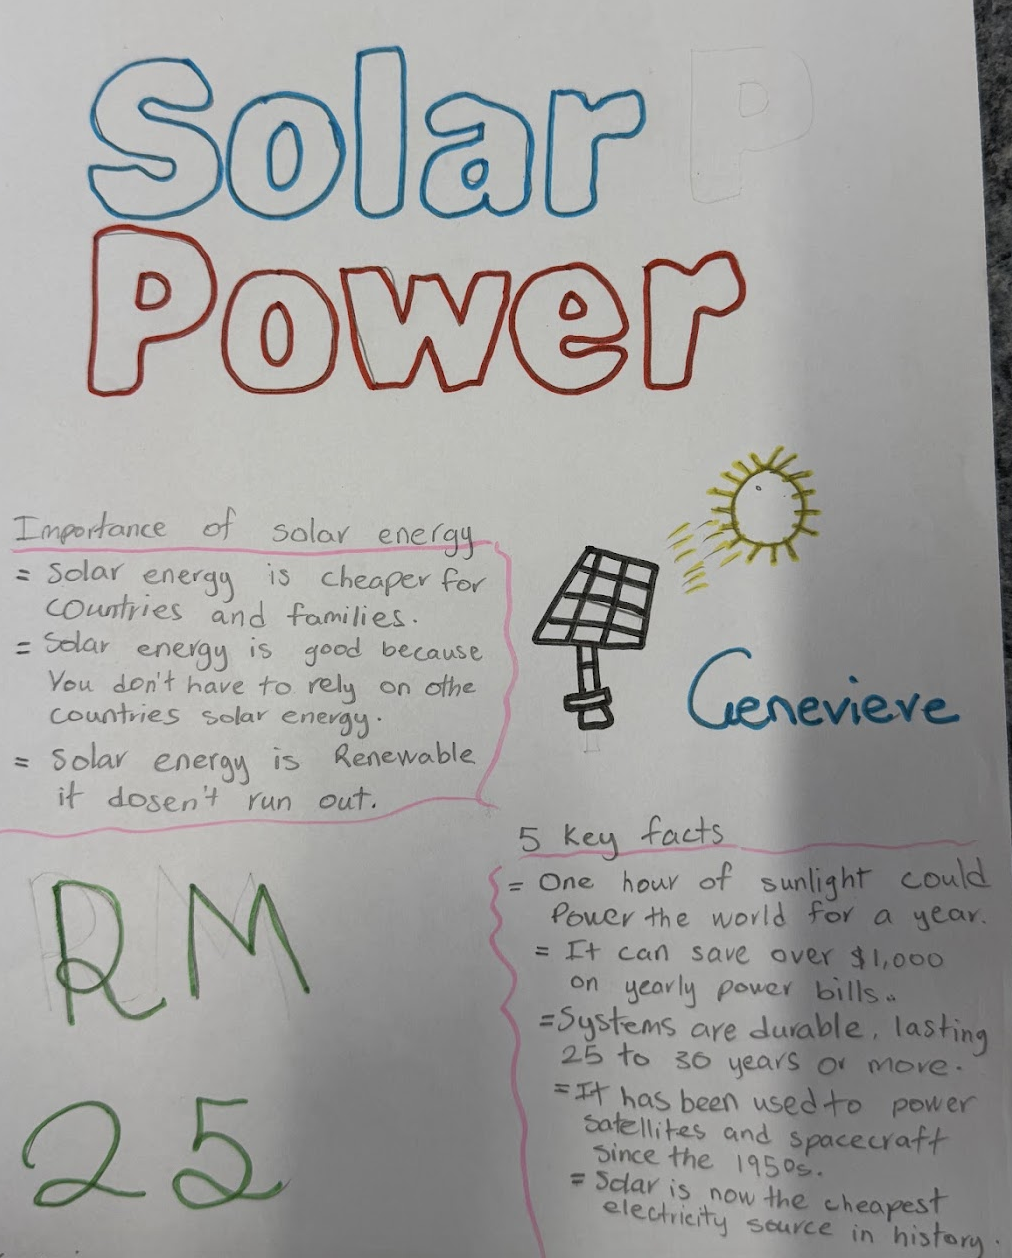 Solar P
Power
Importance of solar energy
= Solar energy is cheaper for
countries and families.
= Solar energy is good because
You don't have to rely on othe
countries solar energy.
= Solar energy is Renewable
it dosen't run out.
Genevieve
RM
25
5 Key facts
= One hour of sunlight could
Power the world for a year.
= It can save over $1,000
on yearly power bills..
= Systems are durable, lasting
25 to 30 years or more.
= It has been used to power
satellites and spacecraft
since the 1950s.
= Solar is now the cheapest
electricity source in history.